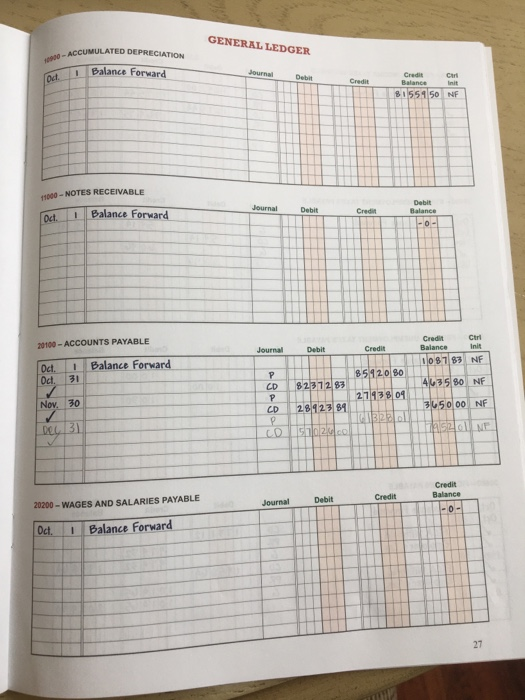 GENERAL LEDGER
10900 – ACCUMULATED DEPRECIATION
Journal Debit Credit Credit Balance Ctrl Init
Oct. 1 Balance Forward 81 559 50 NF
11000 – NOTES RECEIVABLE
Journal Debit Credit Debit Balance
Oct. 1 Balance Forward -0-
20100 – ACCOUNTS PAYABLE
Journal Debit Credit Credit Balance Ctrl Init
Oct. 1 Balance Forward 1 087 83 NF
Oct. 31 P 85 920 80
✓ CD 82 372 83 4 635 80 NF
Nov. 30 P 27 938 09
✓ CD 28 923 89 3 650 00 NF
Dec 31 P 61 328 01
✓ CD 57 026 00 7 952 01 NF
20200 – WAGES AND SALARIES PAYABLE
Journal Debit Credit Credit Balance
Oct. 1 Balance Forward -0-
27